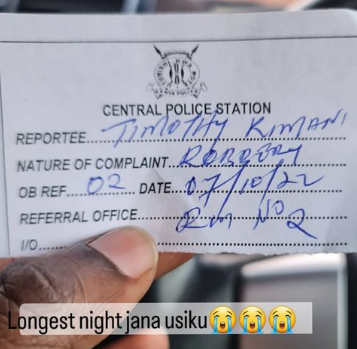 CENTRAL POLICE STATION
REPORTEE TIMOTHY KIMANI
NATURE OF COMPLAINT ROBBERY
OB REF. 02 DATE 07/10/22
REFERRAL OFFICE Rm No 2
I/O
Longest night jana usiku😭😭😭